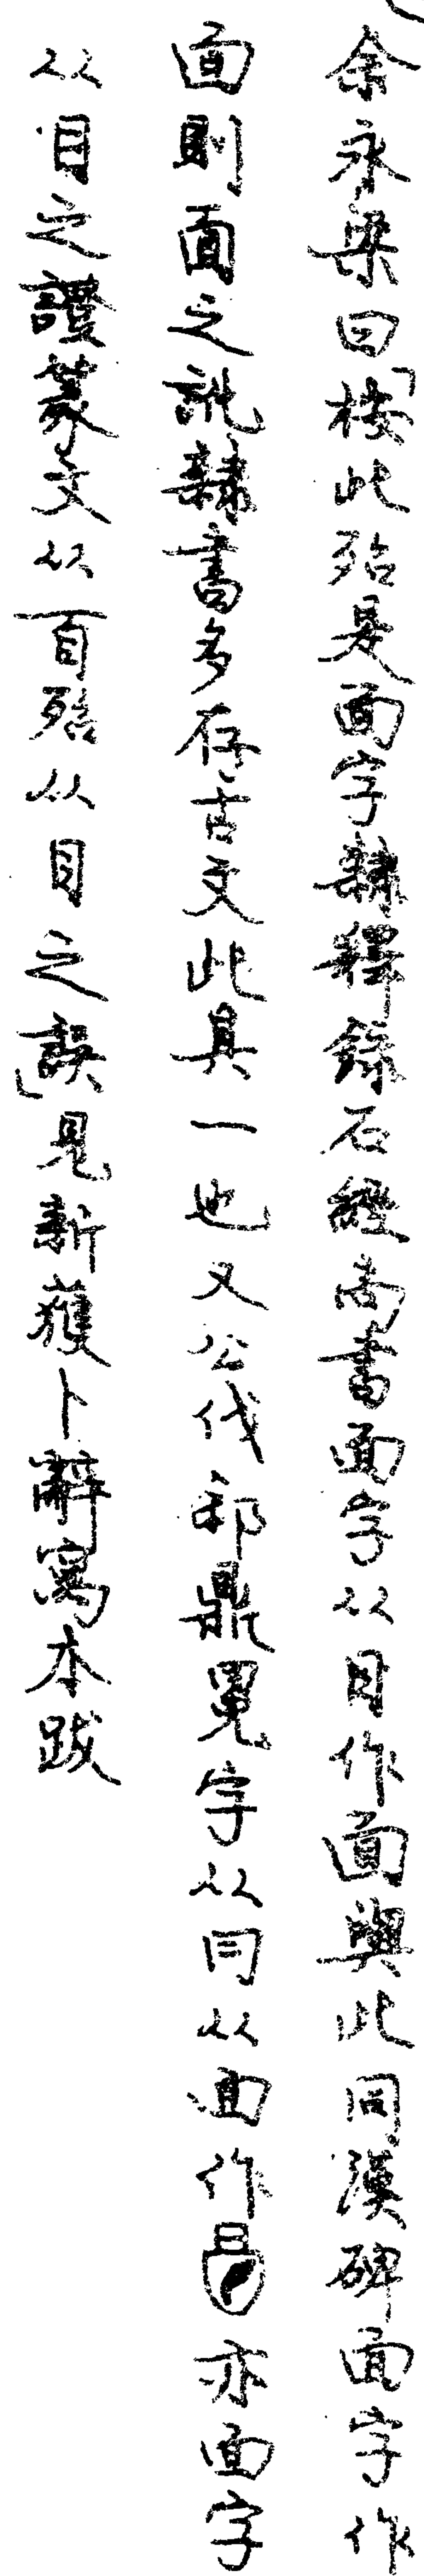 余永梁曰「按此殆是面字隸釋錄石經尚書面字从目作靣與此同漢碑面字作
靣則面之訛隸書多存古文此其一也又公伐邾鼎冕字从冃从面作亦面字
从目之證篆文从𦣻殆从目之誤」見新獲卜辭寫本跋